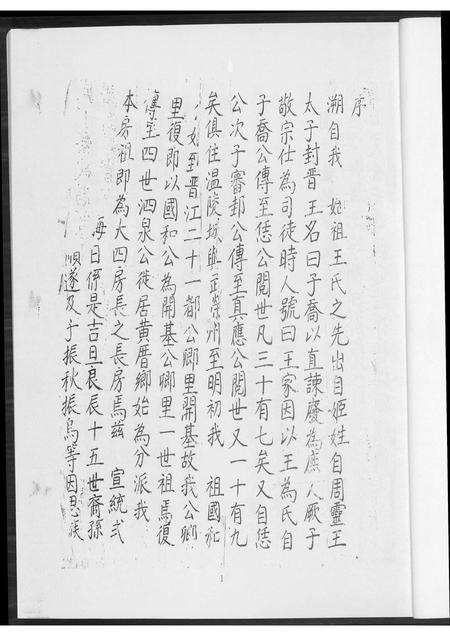 序
溯自我 始祖王氏之先出自姬姓自周靈王
太子封晋王名曰子喬以直諫廢為庶人厥子
敬宗仕為司徒時人號曰王家因以王為氏自
子喬公傳至恁公閱世凡三十有七矣又自恁
公次子審邽公傳至真應公閱世又一十有九
矣俱住温陵 至明初我 祖國和
始至晋江二十一都公卿里開基故我公卿
里復即以國和公為開基公卿里一世祖焉復
傳至四世泗泉公徙居黃厝鄉始為分派我
本房祖即為大四房長之長房焉茲 宣統弍
每日併是吉旦良辰十五世裔孫
順遂及于振秋振烏等因思族
1